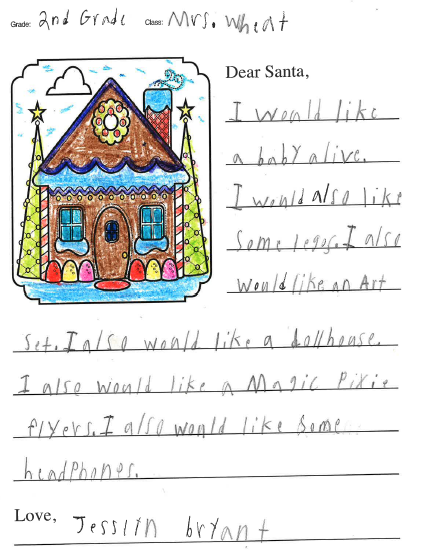 Grade: 2nd Grade Class: Mrs. Wheat
Dear Santa,
I would like
a baby alive.
I would also like
Some legos. I also
would like an Art
Set. I also would like a dollhouse.
I also would like a Magic Pixie
flyers. I also would like Some
headphones.
Love, Jesslyn bryant